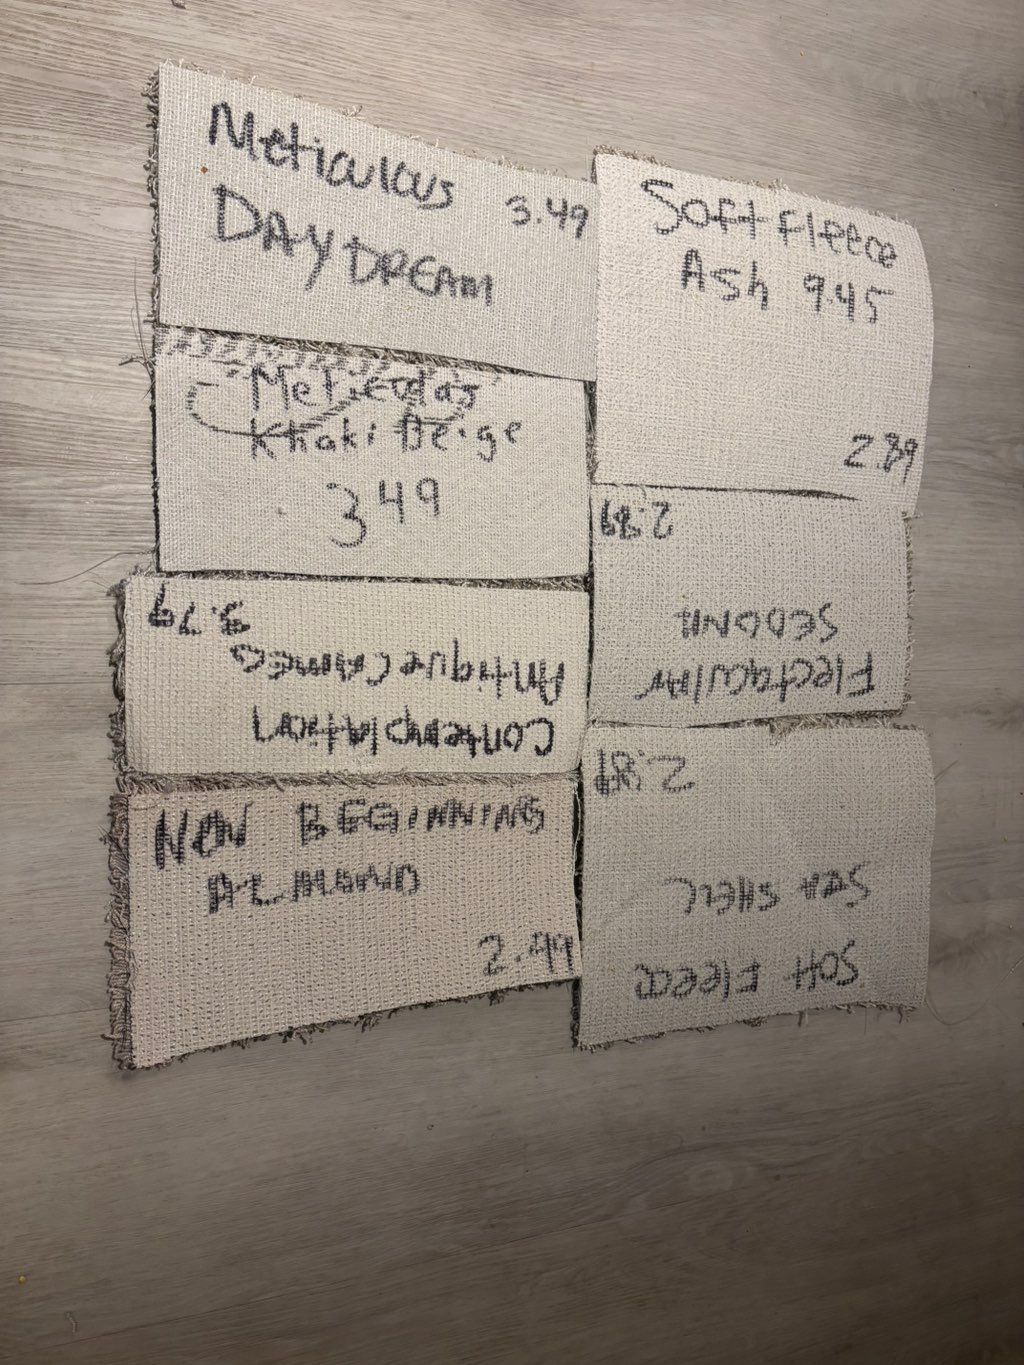 Meticulous
3.49
DAYDREAM
Khaki Beige
349
Contemplation
Antique Cameo
3.79
NEW BEGINNING
ALMOND
2.49
Soft Fleece
Ash 9.45
2.89
SEDONA
2.89
Soft Fleece
SEA SHELL
2.89